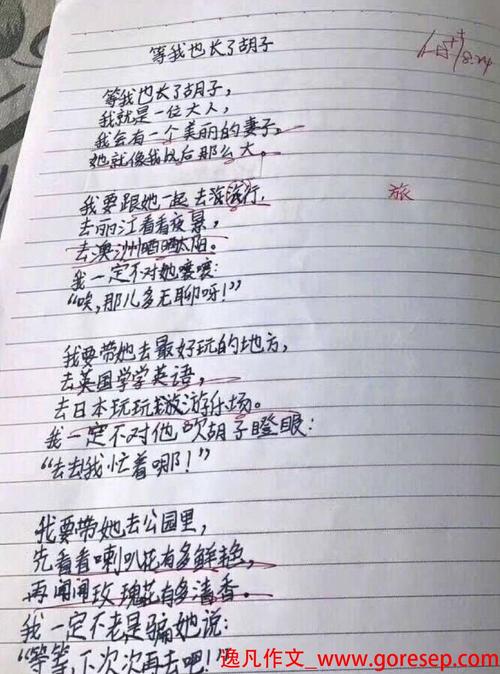 等我也长了胡子
8.24
等我也长了胡子,
我就是一位大人,
我会有一个美丽的妻子,
她就像我以后那么大。
我要跟她一起去旅旅行,
旅
去丽江看看夜景,
去澳洲晒晒太阳。
我一定不对她嚷嚷:
“唉,那儿多无聊呀!”
我要带她去最好玩的地方,
去英国学学英语,
去日本玩玩游乐场。
我一定不对他吹胡子瞪眼:
“去去我忙着哪!”
我要带她去公园里,
先看看喇叭花有多鲜艳,
再闻闻玫瑰花有多清香。
我一定不老是骗她说:
“等等,下次次再去吧!”
逸凡作文_www.goresep.com